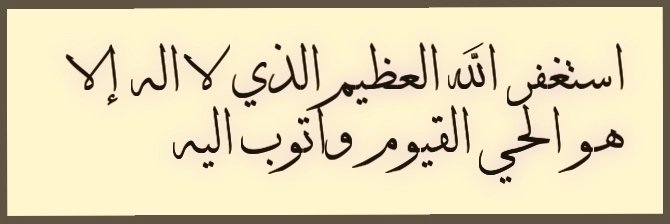 استغفر الله العظيم الذي لا اله إلا
هو الحي القيوم وأتوب اليه